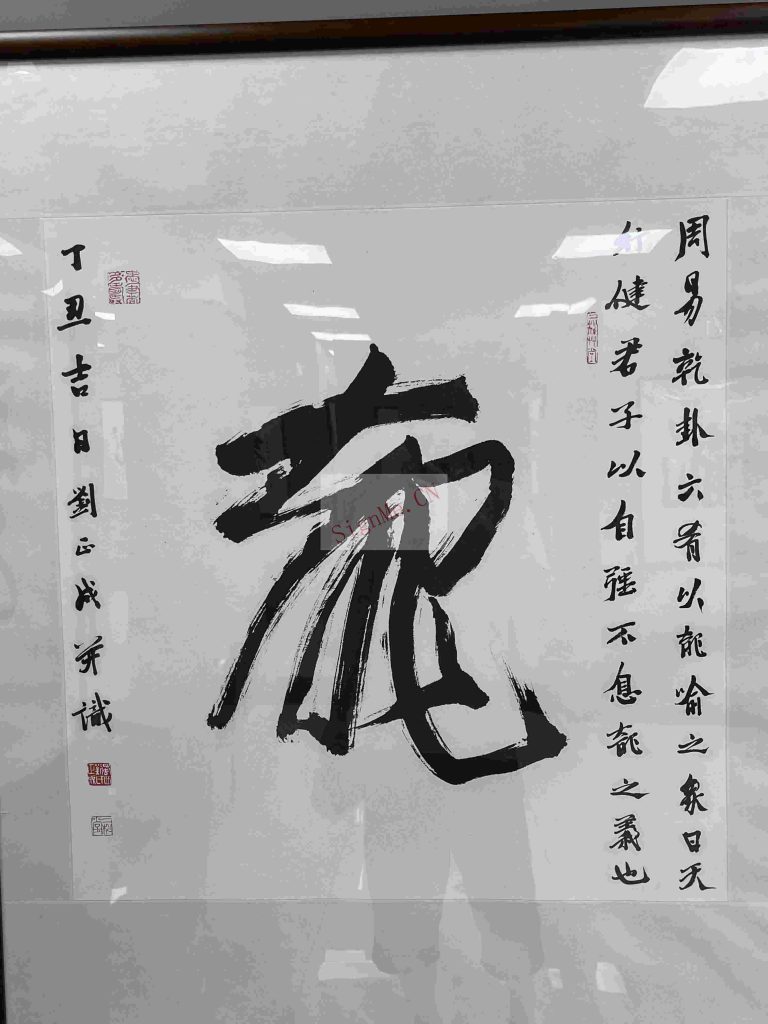 周易乾卦六肴以龍喻之象曰天
行健君子以自強不息龍之義也
龍
丁丑吉日劉正成並識
SignMa.CN